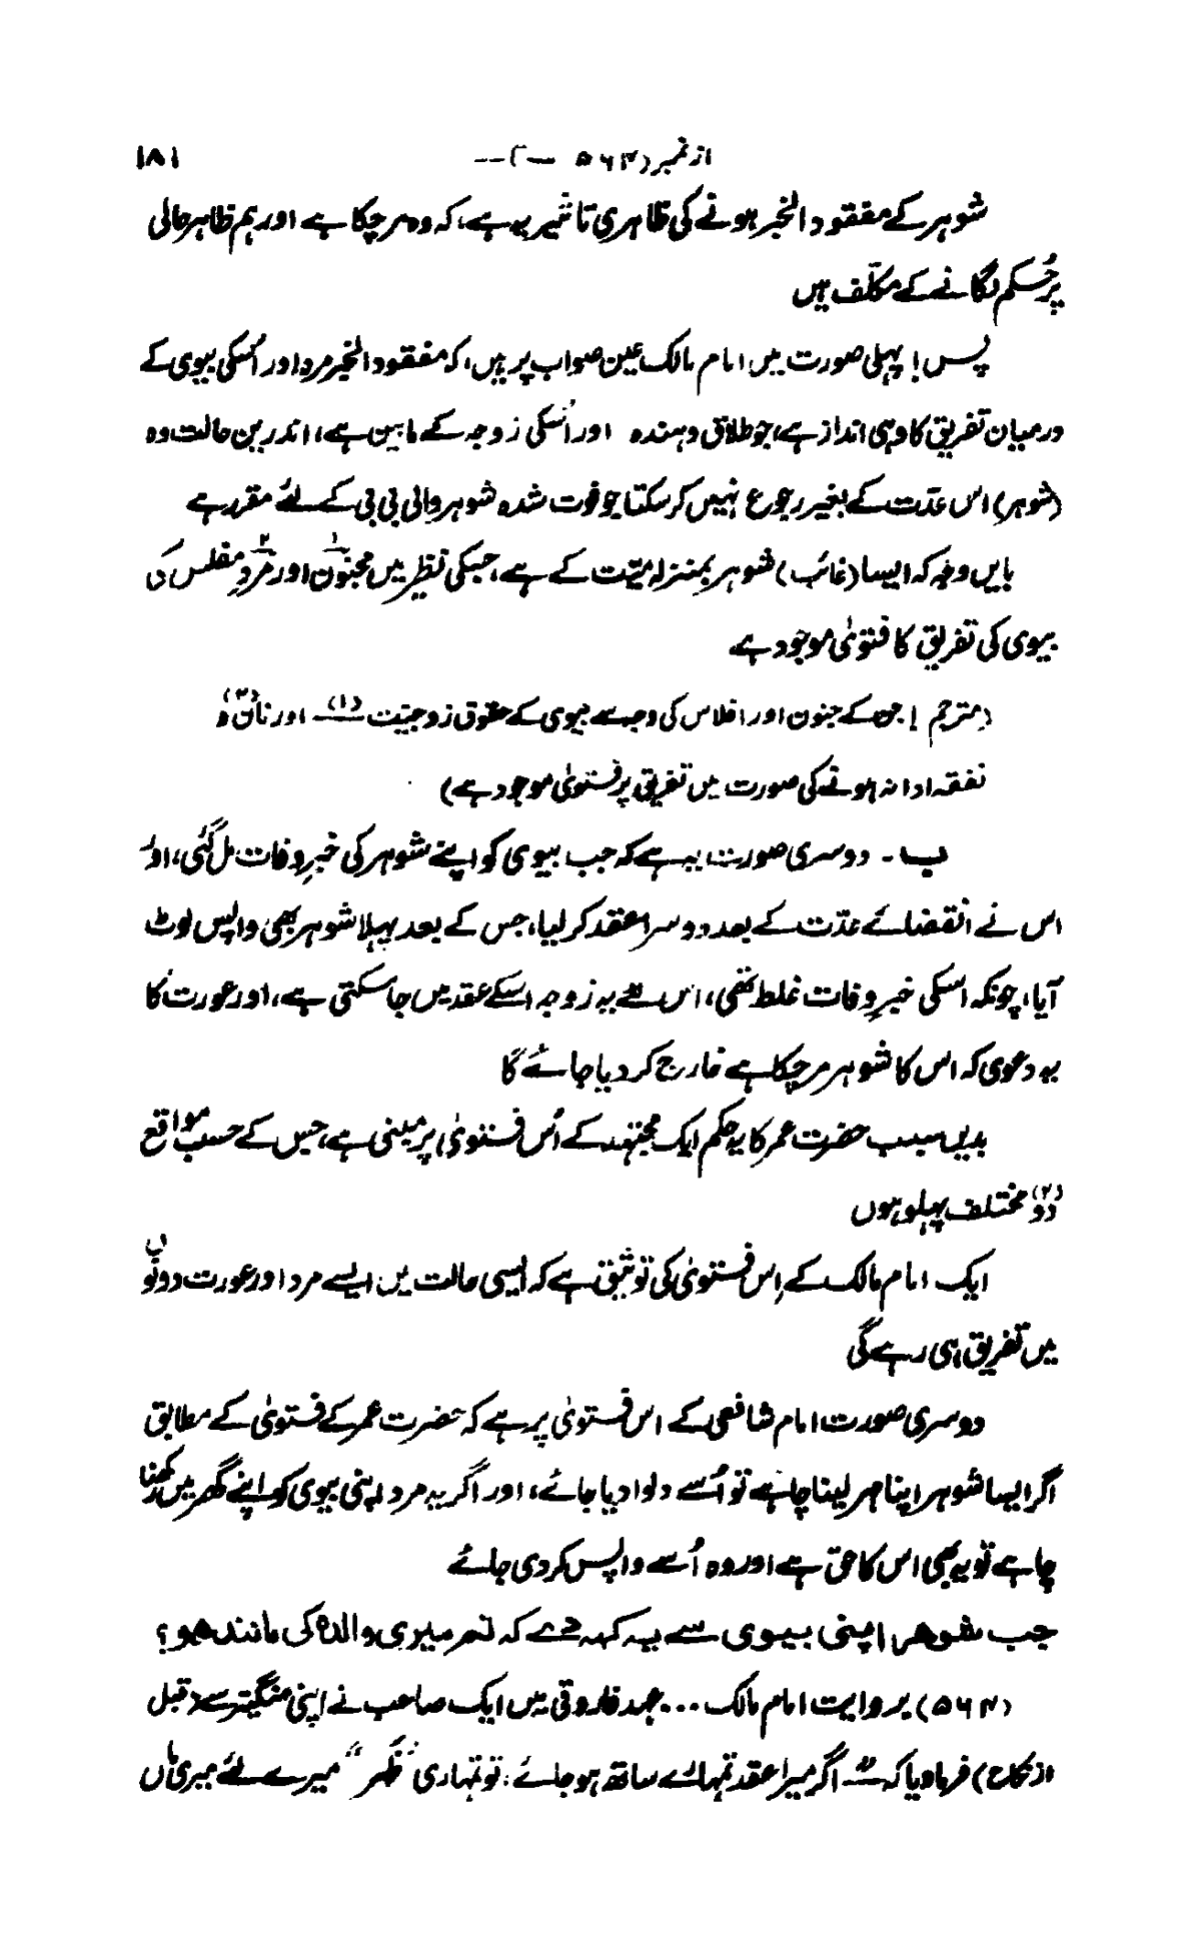 از نمبر (۵۶۴ — ) -- ۱۸۱
شوہر کے مفقود الخبر ہونے کی ظاہری تاثیر یہ ہے، کہ وہ مر چکا ہے اور ہم ظاہر حالی
پر حُکم لگانے کے مکلّف ہیں
پس! پہلی صورت میں امام مالک عین صواب پر ہیں، کہ مفقود الخبر مرد اور اُسکی بیوی کے
درمیان تفریق کا وہی انداز ہے، جو طلاق دہندہ اور اُسکی زوجہ کے مابین ہے، اندریں حالت وہ
(شوہر) اس عدّت کے بغیر رجوع نہیں کر سکتا جو فوت شدہ شوہر والی بی بی کے لئے مقرر ہے
بایں وجہ کہ ایسا (غائب) شوہر بمنزلہ میّت کے ہے، جسکی نظیر میں مجنون۱ اور مَردِ۲ مفلس کی
بیوی کی تفریق کا فتویٰ موجود ہے
(مترجم! جن کے جنون اور افلاس کی وجہ سے بیوی کے حقوق زوجیّت (۱) — اور نان (۲) و
نفقہ ادا نہ ہونے کی صورت میں تفریق پر فتویٰ موجود ہے)
ب ۔ دوسری صورت یہ ہے کہ جب بیوی کو اپنے شوہر کی خبرِ وفات مل گئی، اور
اس نے انقضائے عدّت کے بعد دوسرا عقد کر لیا، جس کے بعد پہلا شوہر بھی واپس لوٹ
آیا، چونکہ اسکی خبرِ وفات غلط تھی، اس لئے یہ زوجہ اسکے عقد میں جا سکتی ہے، اور عورت کا
یہ دعویٰ کہ اس کا شوہر مر چکا ہے خارج کر دیا جائے گا
بدیں سبب حضرت عمر کا یہ حکم ایک مجتہد کے اُس فتویٰ پر مبنی ہے، جس کے حسب مواقع
دو (۲) مختلف پہلو ہوں
ایک امام مالک کے اِس فتویٰ کی توثیق ہے کہ ایسی حالت میں ایسے مرد اور عورت دونوں
میں تفریق ہی رہے گی
دوسری صورت امام شافعی کے اس فتویٰ پر ہے کہ حضرت عمر کے فتویٰ کے مطابق
اگر ایسا شوہر اپنا مہر لینا چاہے تو اُسے دلوا دیا جائے، اور اگر یہ مرد اپنی بیوی کو اپنے گھر میں رکھنا
چاہے تو یہ بھی اس کا حق ہے اور وہ اُسے واپس کر دی جائے
جب شوہر اپنی بیوی سے یہ کہہ دے کہ تم میری والدہ کی مانند ہو؟
(۵۶۴) بروایت امام مالک ... عہد فاروقی میں ایک صاحب نے اپنی منگیتر سے (قبل
از نکاح) فرما دیا کہ — اگر میرا عقد تمہارے ساتھ ہو جائے، تو تمہاری "ظَہر" میرے لئے میری ماں